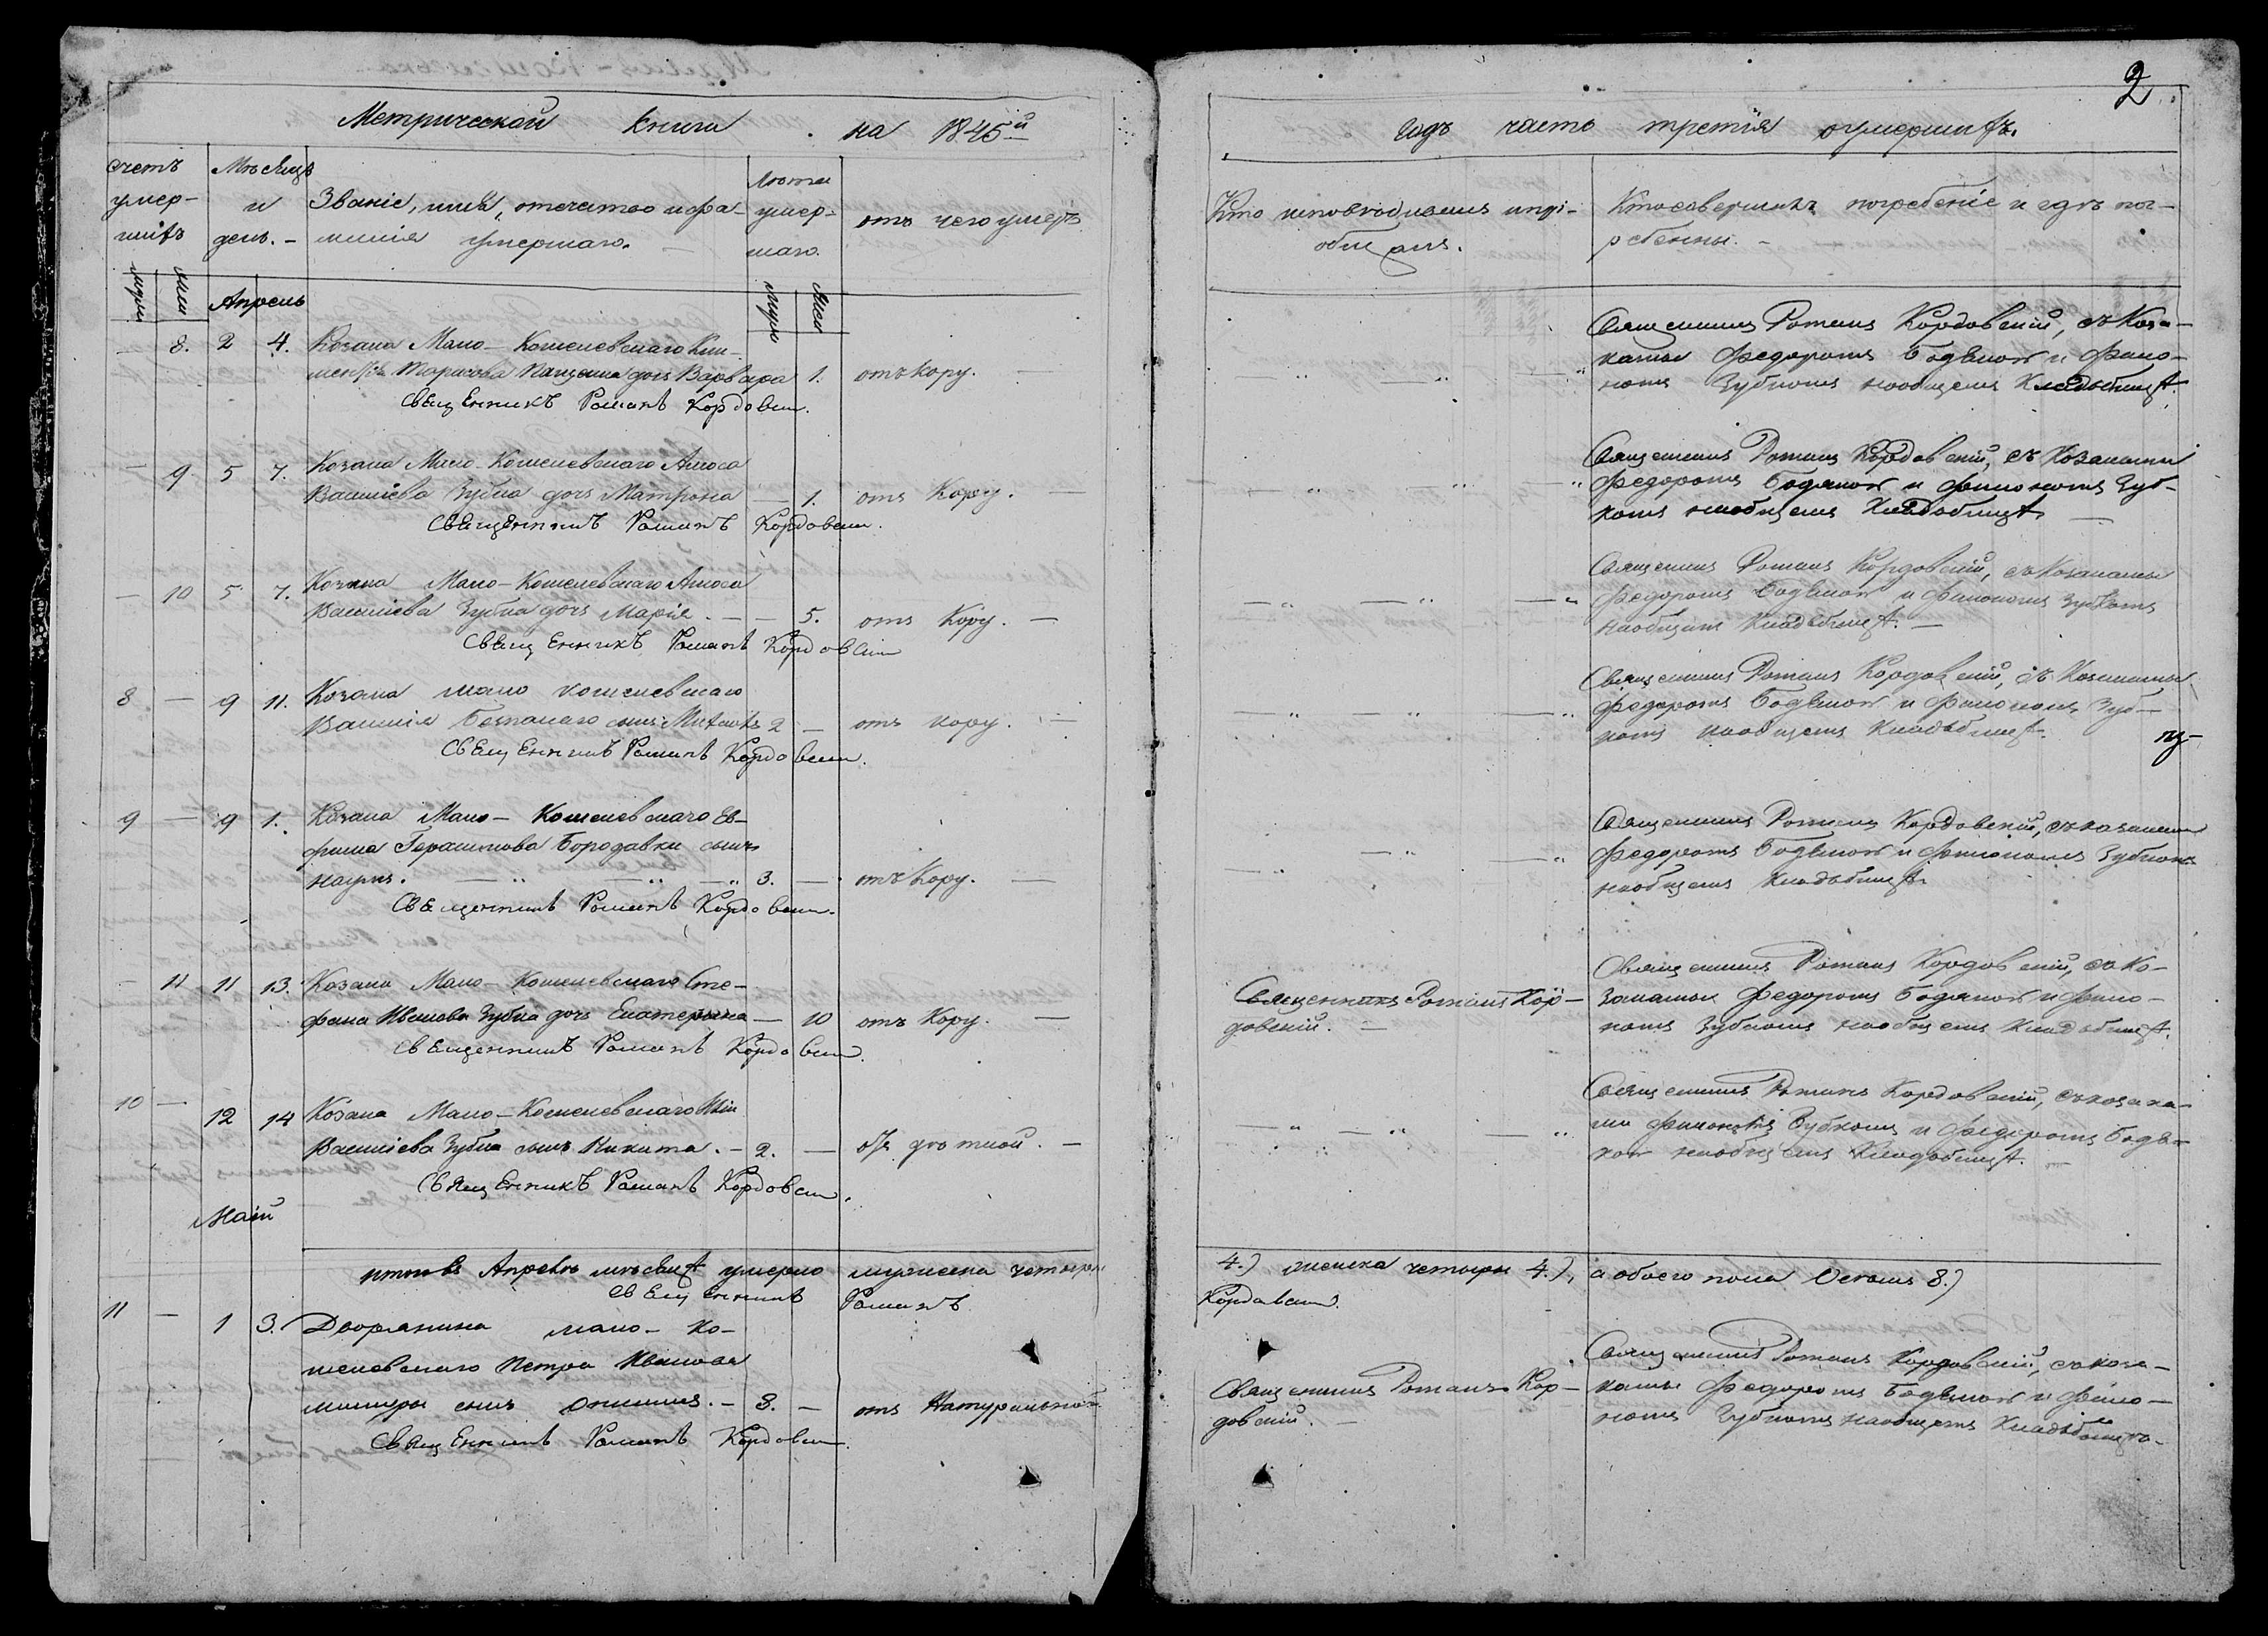 2
Метрической книги на 1845й
годъ часть третія оумершихъ.
счетъ умер-шихъ
Мѣсяцъ и день.
Званіе, имя, отечество и фа-
милія умершаго.
Лѣта умер-шаго.
отъ чего умеръ
Кто исповѣдывалъ и прі-
общалъ.
Кто совершилъ погребеніе и гдѣ пог-
ребенны.
муж жен
муж жен
Апрель
8. 2 4. Козака Мало-Кошелевскаго Кли-
дочь Варвара 1. отъ кору.
Священникъ Романъ Кордовскій.
Священникъ Романъ Кордовскій, съ Коза-
ками Федоромъ и Фило-
номъ Зубкомъ наобщемъ Кладбищѣ.
9. 5 7. Козака Мало-Кошелевскаго Амоса
Василіева Зубка дочь Матрона 1. отъ Кору.
Священникъ Романъ Кордовскій.
Священникъ Романъ Кордовскій, съ Козаками
Федоромъ и Филономъ Зуб-
комъ наобщемъ Кладбищѣ
10 5 7. Козака Мало-Кошелевскаго Амоса
Василіева Зубка дочь Марія. 5. отъ Кору.
Священникъ Романъ Кордовскій
Священникъ Романъ Кордовскій, съ козаками
Федоромъ и Филономъ Зубкомъ
наобщемъ Кладбищѣ.
8 9 11. Козака мало кошелевскаго
Василія сынъ 2 отъ кору.
Священникъ Романъ Кордовскій.
Священникъ Романъ Кордовскій, съ Козаками
Федоромъ и Филономъ Зуб-
комъ наобщемъ Кладбищѣ.
9 9 1. Козака Мало-Кошелевскаго Ев-
фима Герасимова Бородавки сынъ
Наумъ. 3. отъ Кору.
Священникъ Романъ Кордовскій.
Священникъ Романъ Кордовскій, съ козаками
Федоромъ и Филономъ Зубкомъ
наобщемъ Кладбищѣ
11 11 13. Козака Мало-Кошелевскаго Сте-
фана Иванова Зубка дочь Екатерина 10 отъ Кору.
Священникъ Романъ Кордовскій.
Священникъ Романъ Кор-
довскій.
Священникъ Романъ Кордовскій, съ Ко-
заками Федоромъ и Фило-
номъ Зубкомъ наобщемъ Кладбищѣ.
10 12 14 Козака Мало-Кошелевскаго
Василіева Зубка сынъ Никита. 2.
Священникъ Романъ Кордовскій.
Священникъ Романъ Кордовскій, съ козака-
ми Филономъ Зубкомъ и Федоромъ
наобщемъ Кладбищѣ.
Маій
итого въ Апрелѣ мѣсяцѣ умерло мужеска четыри
4.) женска четыри 4.), а обоего пола 8.)
Священникъ Романъ
Кордовскій.
11 1 3. Дворянина мало-ко-
шелевскаго Петра Иванова
сынъ 3. отъ Натуральной
Священникъ Романъ Кордовскій.
Священникъ Романъ Кор-
довскій.
Священникъ Романъ Кордовскій, съ коза-
ками Федоромъ и Фило-
номъ Зубкомъ наобщемъ Кладбищѣ